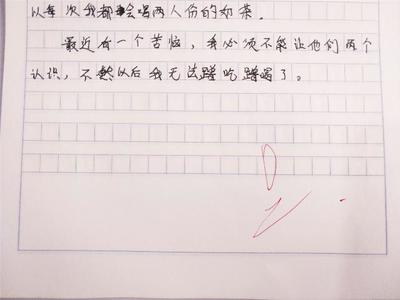 以每次我都会喝两人份的奶茶.
最近有一个苦恼，我必须不能让他们两个
认识，不然以后我无法蹭吃蹭喝了。